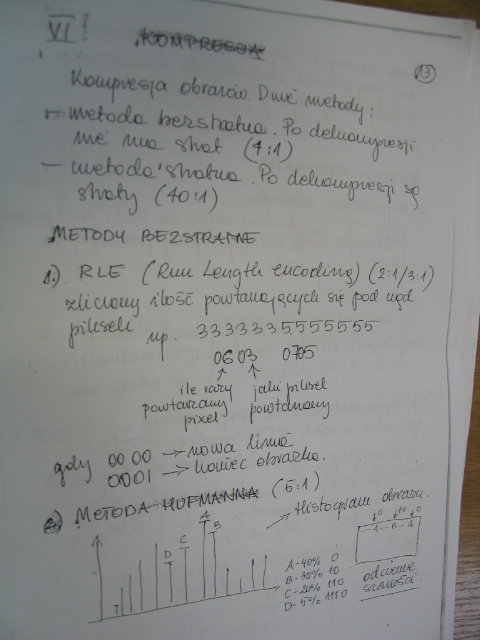 VI
KOMPRESJA
13
Kompresja obrazów. Dwie metody:
- metoda bezstratna. Po dekompresji
nie ma strat (4:1)
- metoda stratna. Po dekompresji są
straty (40:1)
METODY BEZSTRATNE
1.) RLE (Run Length encoding) (2:1/3:1)
zliczamy ilość powtarzających się pod rząd
pikseli np. 3333335555555
0603 0705
ile razy jaki piksel
powtarzany powtarzany
pixel
gdy 00 00 → nowa linia
0001 → koniec obrazka.
2.) METODA HUFMANNA (5:1)
→ Histogram obrazu.
A
B
C
D
-A--B-A
A-40% 0
B-30% 10
C-20% 110
D-5% 1110
odcienie
szarości